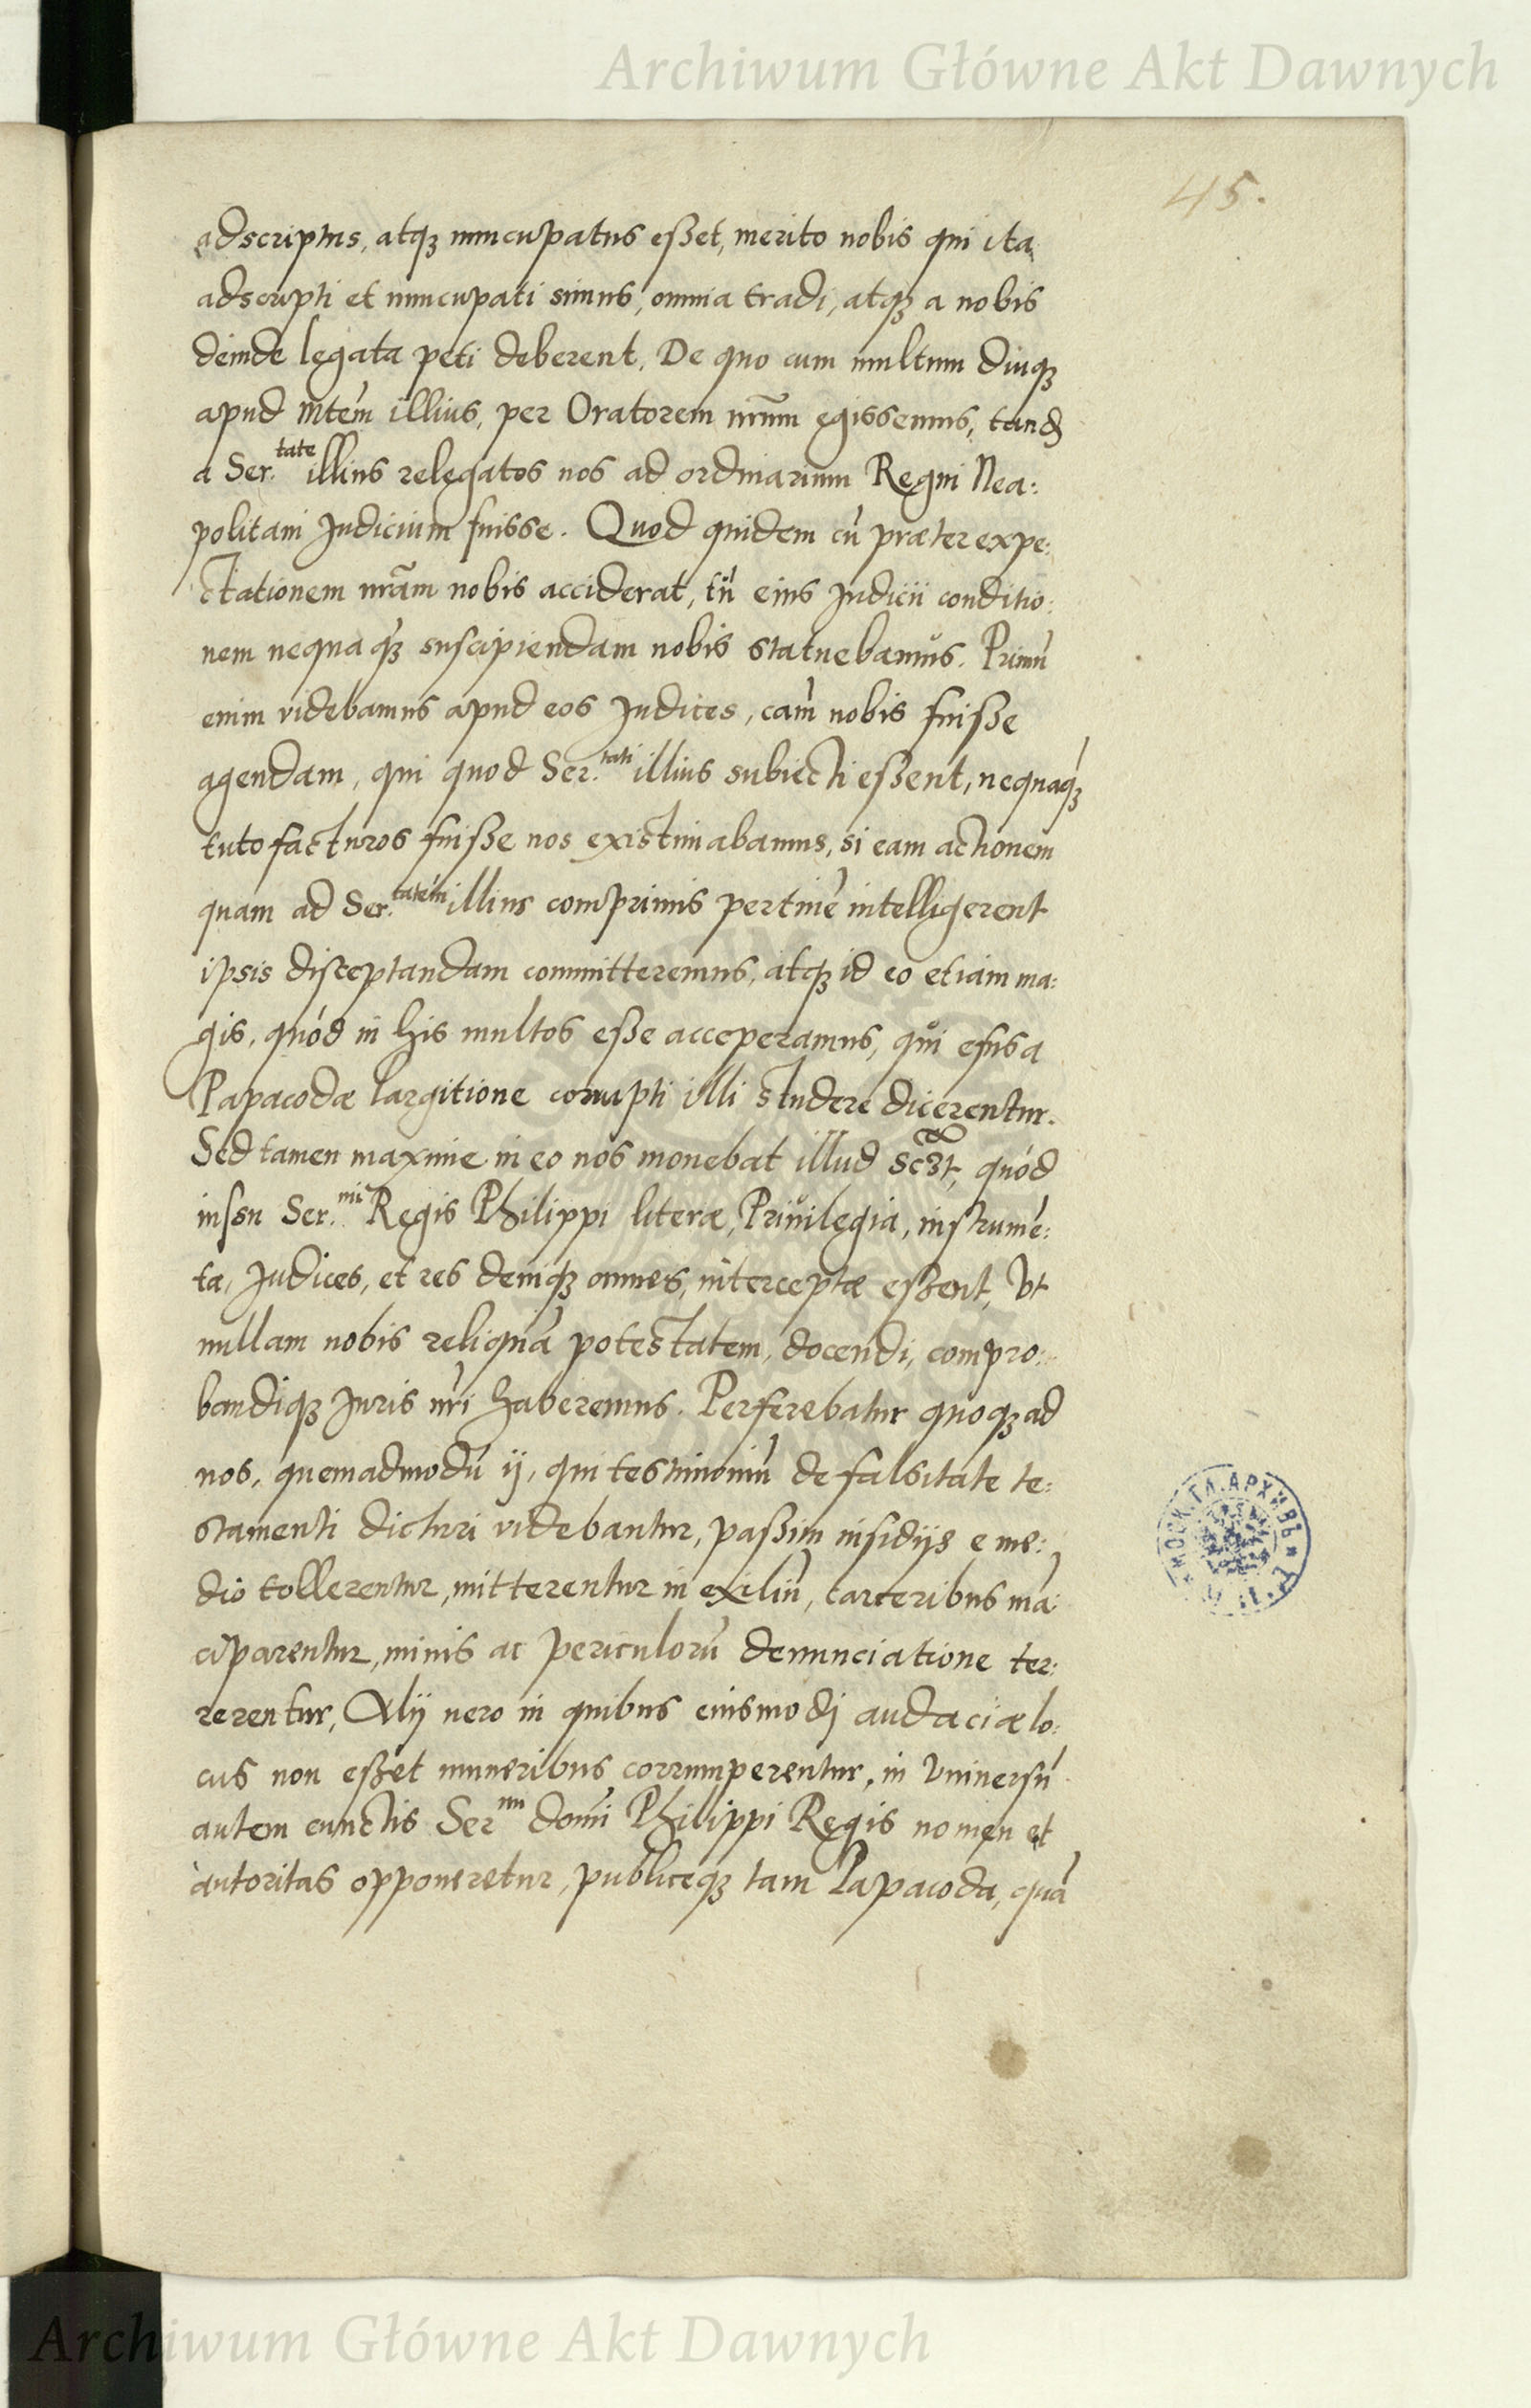 Archiwum Główne Akt Dawnych
45.
adscriptus, atqꝫ nuncupatus eßet, merito nobis qui ita
adscripti et nuncupati simus, omnia tradi, atqꝫ a nobis
deinde legata peti deberent. De quo cum multum diuqꝫ
apud Mtem̄ illius, per Oratorem nr̃um egissemus, tandē
a Ser.tate illius relegatos nos ad ordinarium Regni Nea:
politani Judicium fuisse. Quod quidem cū præter expe:
ctationem nr̃am nobis acciderat, tū eius Judicii conditio:
nem nequaqꝫ suscipiendam nobis statuebamus. Primū
enim videbamus apud eos Judices, cam̄ nobis fuiße
agendam, qui quod Ser.tati illius subiecti eßent, nequaqꝫ
tuto facturos fuiße nos existimabamus, si eam actionem
quam ad Ser.tatem illius comprimis pertinē intelligerent
ipsis disceptandam committeremus, atqꝫ id eo etiam ma:
gis, quòd in his multos eße acceperamus, qui efusa
Papacodæ largitione corrupti illi studere dicerentur.
Sed tamen maxime in eo nos monebat illud quòd
iussu Ser.mi Regis Philippi literæ, Privilegia, instrumē:
ta, Judices, et res deniqꝫ omnes, interceptæ eßent, Vt
nullam nobis reliquā potestatem, docendi, compro:
bandiqꝫ Juris nr̄i haberemus. Perferebatur quoqꝫ ad
nos, quemadmodū ij, qui testimoniū de falsitate te:
stamenti dicturi videbantur, paßim insidijs e me:
dio tollerentur, mitterentur in exiliū, carceribus mā
ciparentur, minis ac periculorū denunciatione ter:
rerentur, Alij vero in quibus eiusmodj audaciæ lo:
cus non eßet muneribus corrumperentur, in Vniversū
autem cunctis Ser mi domi Philippi Regis nomen et
autoritas opponeretur, publiceqꝫ tam Papacoda, quā
МОСК. ГЛ. АРХИВЪ
Archiwum Główne Akt Dawnych